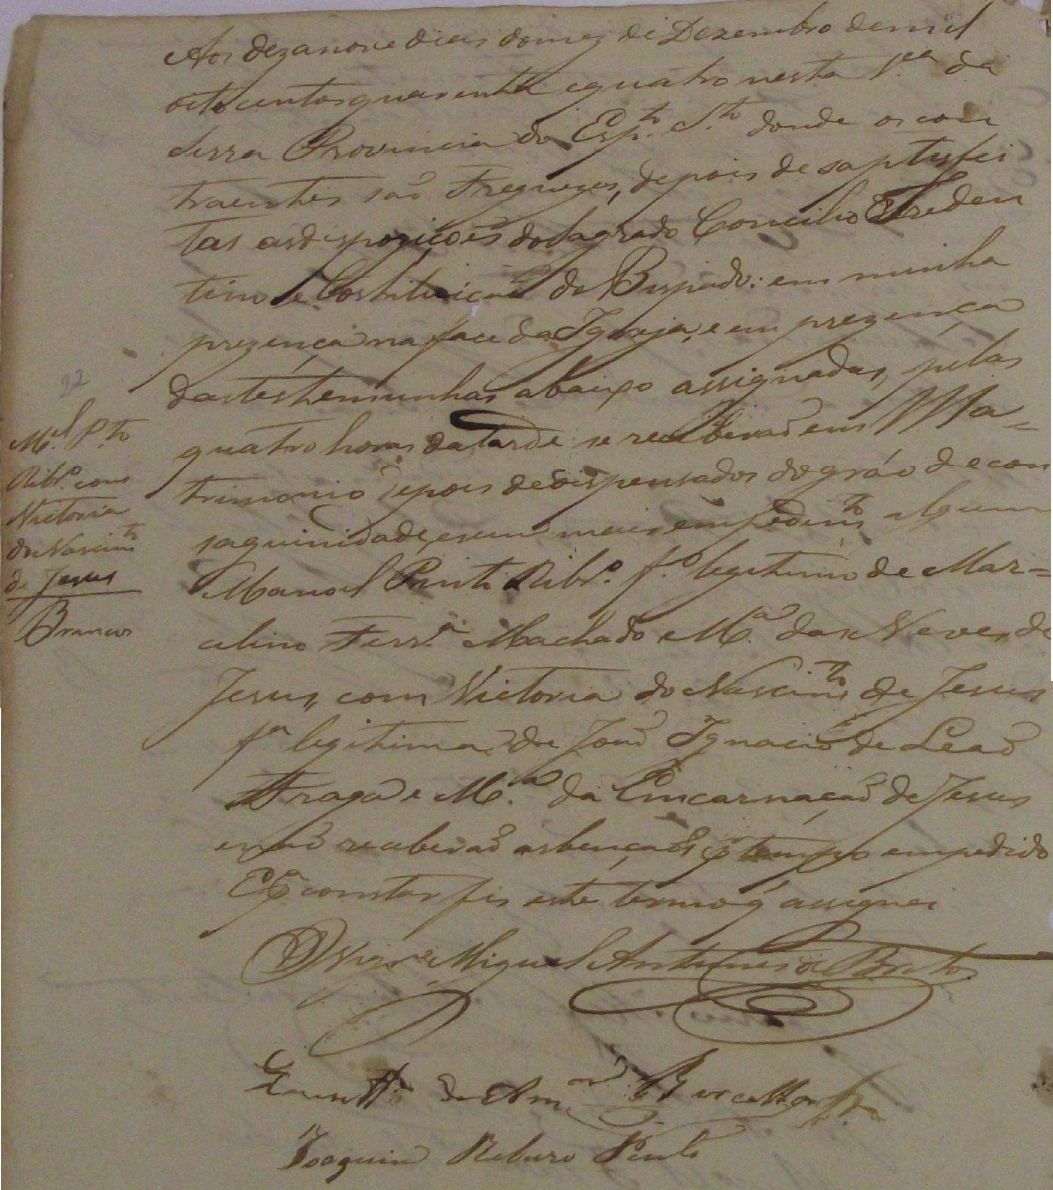 Aos dezanove dias do mez de Dezembro de mil
oito centos quarenta e quatro nesta V.ª da
Serra Provincia do Esp.to S.to donde os con
traentes saõ Freguezes, depois de saptisfei
tas as disposiçoẽs do Sagrado Concilio Treden
tino e Costituiçaõ do Bispado: em minha
prezença na face da Igreja, e em prezença
das testemunhas abaixo assignadas, pelas
quatro horas da tarde se receberaõ em Ma=
trimonio depois de dispensados do gráo de con
saguinidade, e sem mais empedim.to algum
Manoel Pinto Ribr.º f.º legitimo de Mar=
culino Ferr.ª Machado e M.ª das Neves de
Jesus, com Victoria do Nascim.to de Jesus
f.ª legitima de Joaõ Ignacio de Leaõ
Fraga e M.ª da Encarnaçaõ de Jesus
e naõ receberaõ as bençaõs p.r tempo empedido
E p.ª constar fis este termo q̃ assignei
O Vigr.º Miguel Antunes de Brito
de Am.or
Joaquim Ribero Pinto
22
M.el P.to
Ribr.º com
Victoria
do Nascim.to
de Jesus
Brancos